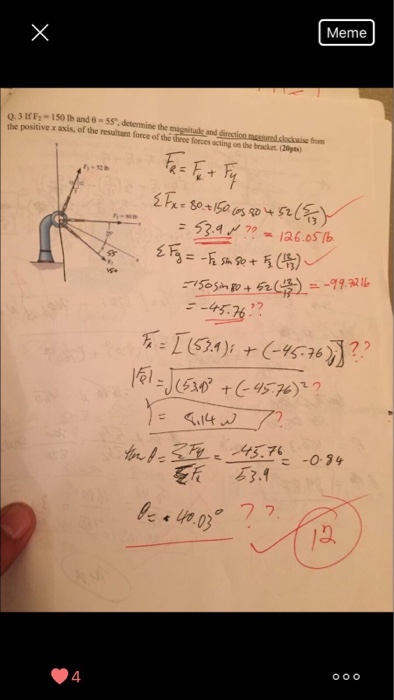 Meme
Q. 3 If F₂ = 150 lb and θ = 55°, determine the magnitude and direction measured clockwise from
the positive x axis, of the resultant force of the three forces acting on the bracket. (20pts)
55
150
F_R = F_x + F_y
ΣFx = 80 + 150 cos 80 + 52(5/13)
= 53.9 N ?? = 126.05 lb
ΣFy = -F₂ sin 80 + F₃(12/13)
= -150 sin 80 + 52(12/13) = -99.72 lb
= -45.76 ??
= [(53.9)i + (-45.76)j] ??
= √(53.9)² + (-45.76)² ?
= N ?
tan θ = ΣFy/ΣFx = -45.76/53.9 = -0.84
θ = 40.03° ??
12
4